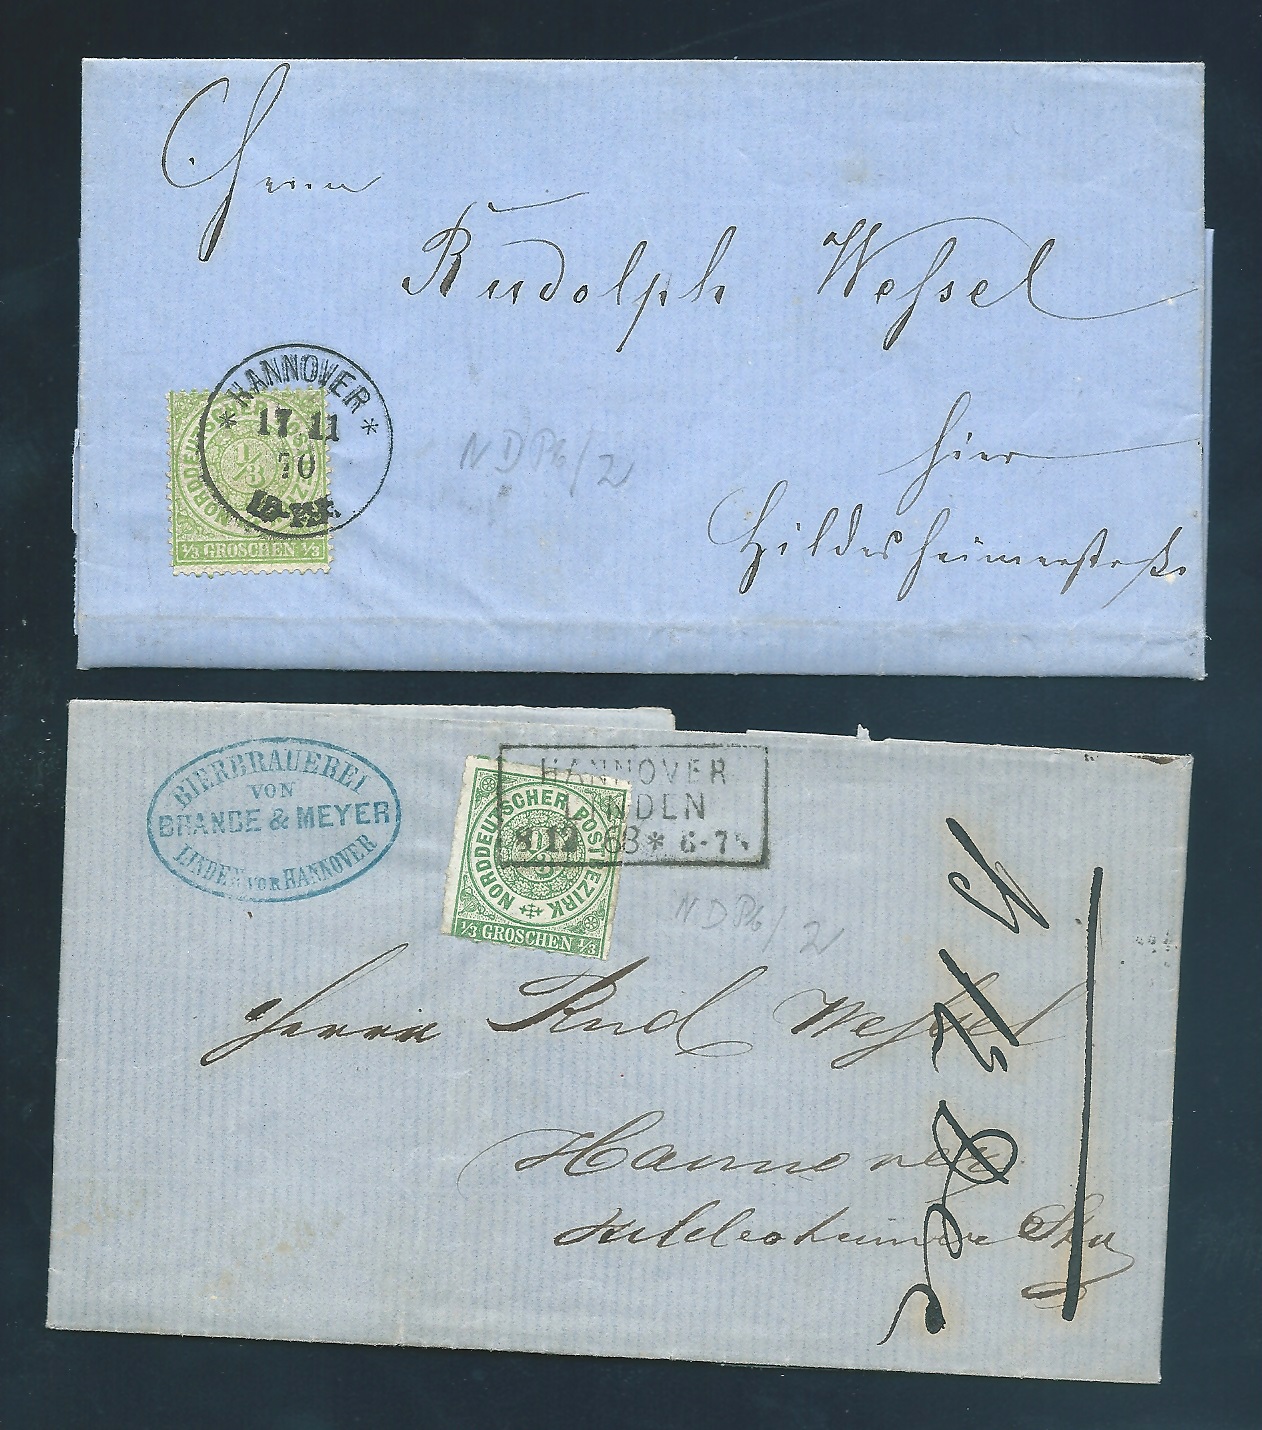 Herrn
Rudolph Wessel
hier
Hildesheimerstraße
* HANNOVER *
17 11
70
NORDDEUTSCHER POSTBEZIRK
1/3
1/3 GROSCHEN 1/3
NDPb/2
BIERBRAUEREI
VON
BRANDE & MEYER
LINDEN VOR HANNOVER
HANNOVER
LINDEN
8 12 68 * 6-7
NORDDEUTSCHER POSTBEZIRK
1/3
1/3 GROSCHEN 1/3
NDPb/2
Herrn Rud Wessel
Hannover
Hildesheimer Str